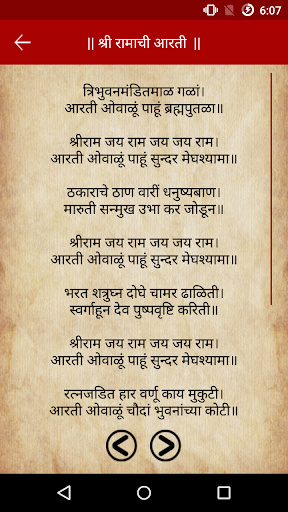 6:07
|| श्री रामाची आरती ||
त्रिभुवनमंडितमाळ गळां।
आरती ओवाळूं पाहूं ब्रह्मपुतळा॥
श्रीराम जय राम जय जय राम।
आरती ओवाळूं पाहूं सुन्दर मेघश्यामा॥
ठकाराचे ठाण वारीं धनुष्यबाण।
मारुती सन्मुख उभा कर जोडून॥
श्रीराम जय राम जय जय राम।
आरती ओवाळूं पाहूं सुन्दर मेघश्यामा॥
भरत शत्रुघ्न दोघे चामर ढाळिती।
स्वर्गाहून देव पुष्पवृष्टि करिती॥
श्रीराम जय राम जय जय राम।
आरती ओवाळूं पाहूं सुन्दर मेघश्यामा॥
रत्नजडित हार वर्णू काय मुकुटी।
आरती ओवाळूं चौदां भुवनांच्या कोटी॥